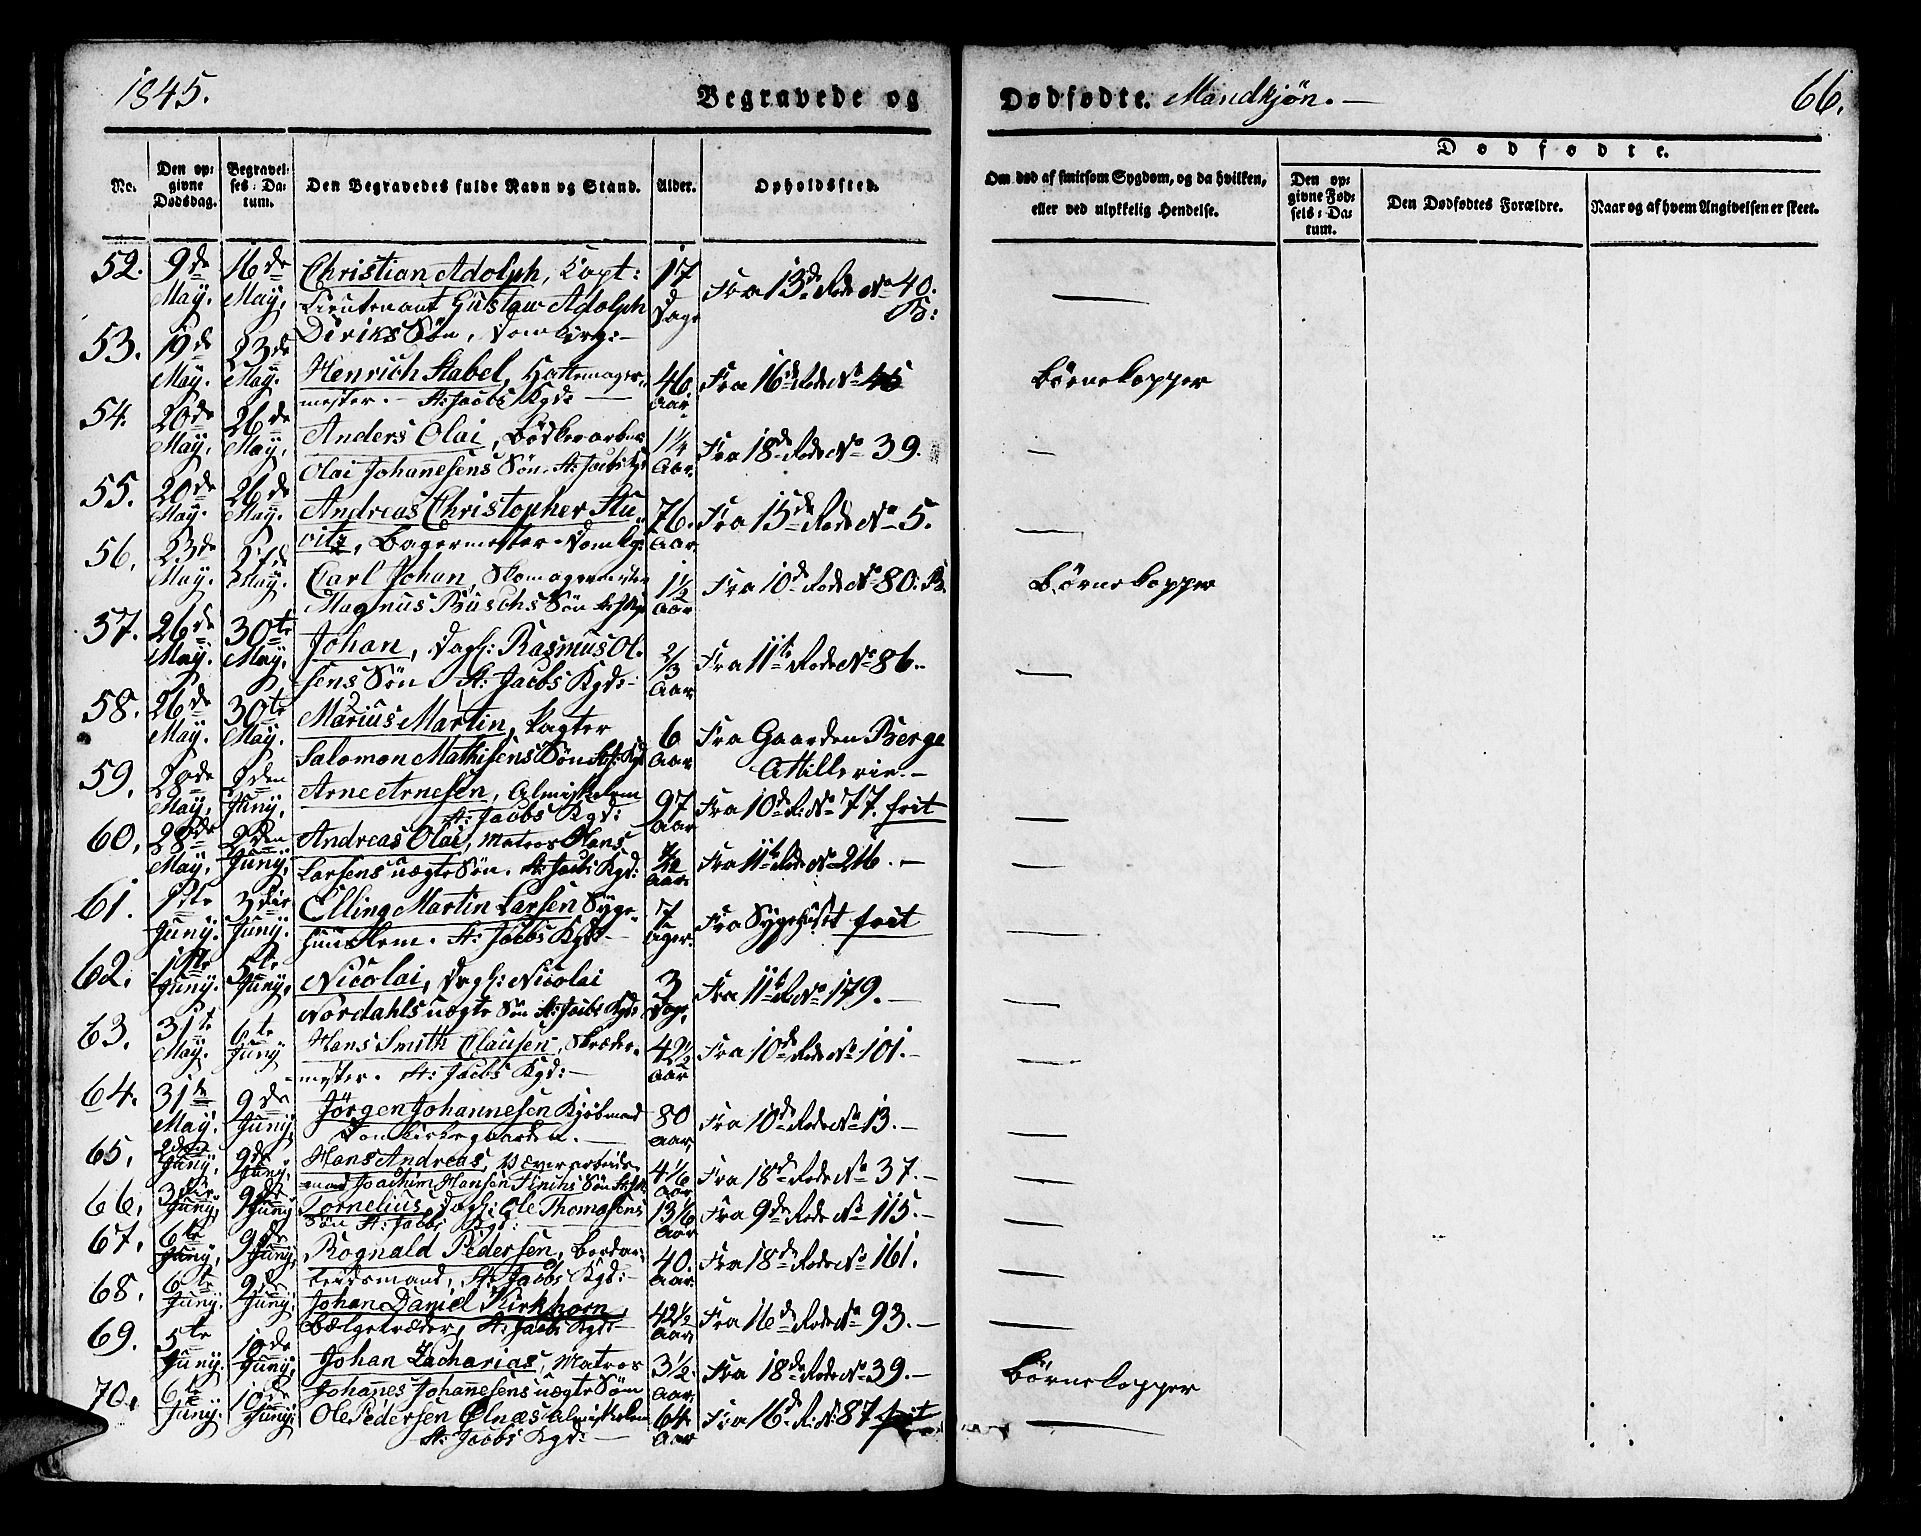 1845.
Begravede og
Dødfødte. Mandkjøn. —
66.
No.
Den op-
givne
Dødsdag.
Begravel-
ses-Da-
tum.
Den Begravedes fulde Navn og Stand.
Alder.
Opholdssted.
Om død af smitsom Sygdom, og da hvilken,
eller ved ulykkelig Hendelse.
Dødfødte.
Den op-
givne Fød-
sels-Da-
tum.
Den Dødfødtes Forældre.
Naar og af hvem Angivelsen er skeet.
52. 9de May. 16de May. Christian Adolph, Capt: 17 Dage Fra 13de Rode No 40. B:
Lieutenant Gustav Adolph
Diriks Søn, Domkirkg: —
53. 19de May. 23de May. Henrich Stabel, Hattemager- 46 Aar Fra 16de Rode No 45 Børnekopper
mester. — St: Jacobs Kgd: —
54. 20de May. 26de May. Anders Olai, Bødkerarbm 1¼ Aar Fra 18de Rode No 39. —
Olai Johanesens Søn. St: Jacobs Kgd
55. 20de May. 26de May. Andreas Christopher Stu 76. Aar Fra 15de Rode No 5. —
vitz, Bagermester. Domkg:
56. 23de May. 27de May. Carl Johan, Skomagermester 1½ Aar Fra 10de Rode No 80. B. Børnekopper
Magnus Büschs Søn St: J. Kgd
57. 26de May. 30te May. Johan, Dagl: Rasmus Ol- 2/3 Aar Fra 11te Rode No 86. —
sens Søn. St: Jacobs Kgd: —
58. 26de May. 30te May. Marius Martin, Pagter 6 Aar Fra Gaarden Berge
Salomon Mathisens Søn St: J: Kgd Attillerie. —
59. 28de May. 2den Juny. Arne Arnesen, Almiskelem 97 Aar Fra 10de R: No 77. frit —
St: Jacobs Kgd:
60. 28de May. 2den Juny. Andreas Olai, Matros Hans Aar. Fra 11te Rode No 216. — —
Larsens uægte Søn. St: Jacobs Kgd:
61. 1ste Juny. 3die Juny. Elling Martin Larsen Syge- Uger. Fra Sygehuset frit —
huus lem. St: Jacobs Kgd —
62. 1ste Juny. 5te Juny. Nicolai, Dagl: Nicolai 3 Dage. Fra 11te R: No 179. — —
Nordahls uægte Søn St: Jacobs Kgd:
63. 31te May. 6te Juny Hans Smith Clausen, Skræder- 42½ Aar Fra 10de Rode No 101. — —
mester. St: Jacobs Kgd: —
64. 31te May. 9de Juny. Jörgen Johannesen Kjöbmand 80 Aar, Fra 10de Rode No 13. — —
Domkirkegaarden. —
65, 2den Juny. 9de Juny. Hans Andreas, Væverarbeids- 4 1/6 Aar Fra 18de Rode No 37. — —
mand Joachim Hansen Finchs Søn
66, 3die Juny, 9de Juny Cornelius, Dagl: Ole Thomasens 13 1/6 Aar Fra 9de Rode No 115. — —
Søn St: Jacobs Kgd:
67, 6te Juny, 9de Juny, Rognald Pedersen, Bordar- 40. Aar. Fra 18de Rode No 161. —
beidsmand, St: Jacobs Kgd: —
68. 6te Juny. 9de Juny. Johan Daniel Kirkhorn, 42½ Aar Fra 16de Rode No 93. — —
Bælgetræder, St: Jacobs Kgd: —
69. 5te Juny. 10de Juny. Johan Zacharias, Matros 3½. Aar. Fra 18de Rode No 39. — Børnekopper
Johannes Johannesens uægte Søn
70. 6te Juny. 10de Juny. Ole Pedersen Ølnæs Almiskelem 64 Aar Fra 16de R: No 87 frit —
St: Jacobs Kgd: —